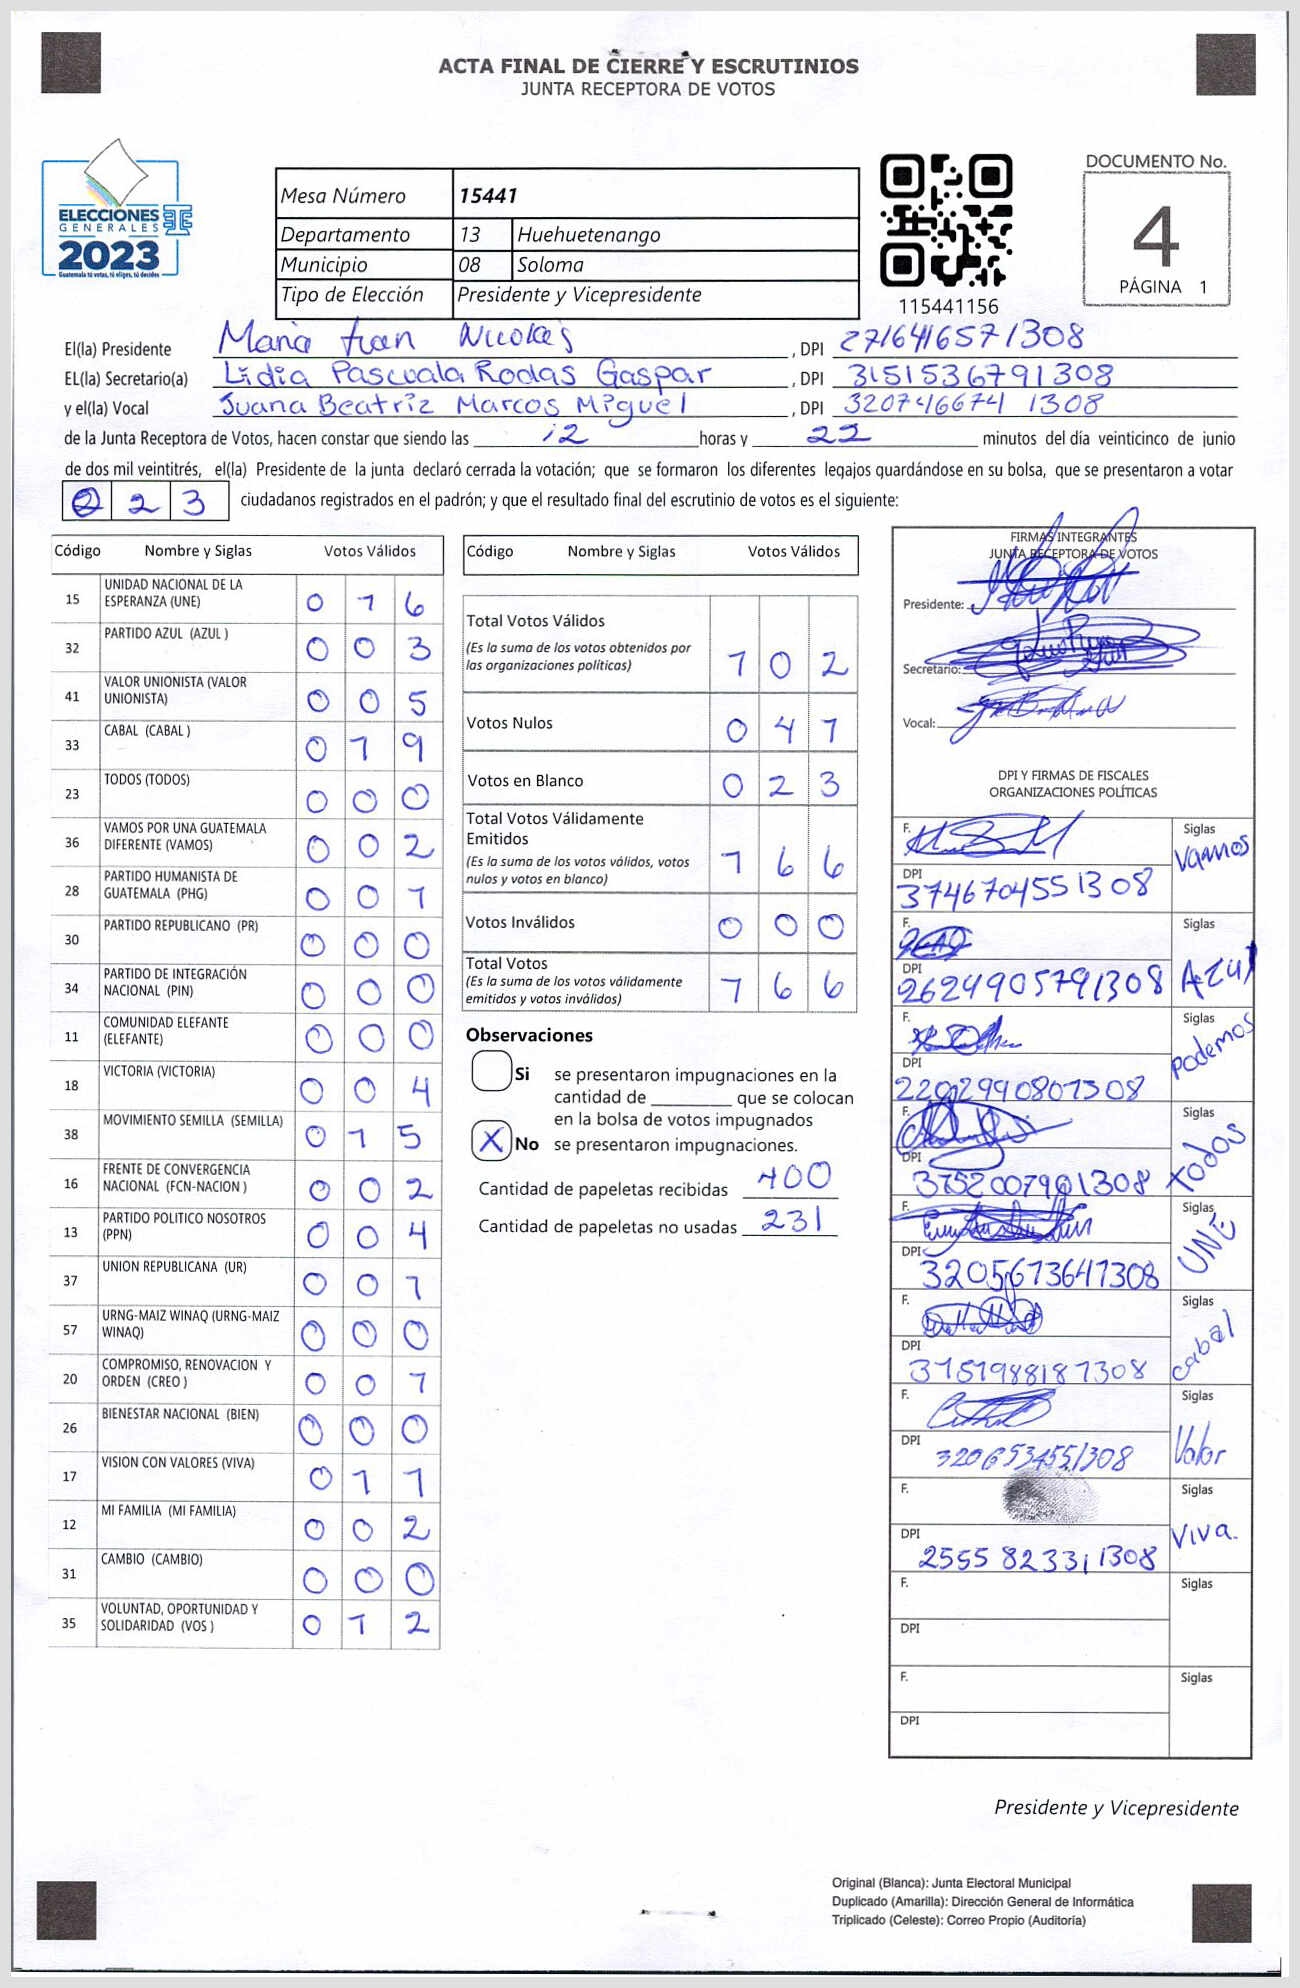 ACTA FINAL DE CIERRE Y ESCRUTINIOS
JUNTA RECEPTORA DE VOTOS
ELECCIONES
GENERALES
2023
Guatemala tú votas, tú eliges, tú decides
Mesa Número 15441
Departamento 13 Huehuetenango
Municipio 08 Soloma
Tipo de Elección Presidente y Vicepresidente
115441156
DOCUMENTO No.
4
PÁGINA 1
El(la) Presidente Maria Juan Nicolás , DPI 2716416571308
EL(la) Secretario(a) Lidia Pascuala Rodas Gaspar , DPI 3151536791308
y el(la) Vocal Juana Beatriz Marcos Miguel , DPI 320746674 1308
de la Junta Receptora de Votos, hacen constar que siendo las 12 horas y 22 minutos del día veinticinco de junio
de dos mil veintitrés, el(la) Presidente de la junta declaró cerrada la votación; que se formaron los diferentes legajos guardándose en su bolsa, que se presentaron a votar
0 2 3 ciudadanos registrados en el padrón; y que el resultado final del escrutinio de votos es el siguiente:
Código Nombre y Siglas Votos Válidos
15 UNIDAD NACIONAL DE LA ESPERANZA (UNE) 0 1 6
32 PARTIDO AZUL (AZUL ) 0 0 3
41 VALOR UNIONISTA (VALOR UNIONISTA) 0 0 5
33 CABAL (CABAL ) 0 1 9
23 TODOS (TODOS) 0 0 0
36 VAMOS POR UNA GUATEMALA DIFERENTE (VAMOS) 0 0 2
28 PARTIDO HUMANISTA DE GUATEMALA (PHG) 0 0 1
30 PARTIDO REPUBLICANO (PR) 0 0 0
34 PARTIDO DE INTEGRACIÓN NACIONAL (PIN) 0 0 0
11 COMUNIDAD ELEFANTE (ELEFANTE) 0 0 0
18 VICTORIA (VICTORIA) 0 0 4
38 MOVIMIENTO SEMILLA (SEMILLA) 0 1 5
16 FRENTE DE CONVERGENCIA NACIONAL (FCN-NACION ) 0 0 2
13 PARTIDO POLITICO NOSOTROS (PPN) 0 0 4
37 UNION REPUBLICANA (UR) 0 0 1
57 URNG-MAIZ WINAQ (URNG-MAIZ WINAQ) 0 0 0
20 COMPROMISO, RENOVACION Y ORDEN (CREO ) 0 0 1
26 BIENESTAR NACIONAL (BIEN) 0 0 0
17 VISION CON VALORES (VIVA) 0 1 1
12 MI FAMILIA (MI FAMILIA) 0 0 2
31 CAMBIO (CAMBIO) 0 0 0
35 VOLUNTAD, OPORTUNIDAD Y SOLIDARIDAD (VOS ) 0 1 2
Código Nombre y Siglas Votos Válidos
Total Votos Válidos
(Es la suma de los votos obtenidos por
las organizaciones políticas) 1 0 2
Votos Nulos 0 4 1
Votos en Blanco 0 2 3
Total Votos Válidamente
Emitidos
(Es la suma de los votos válidos, votos
nulos y votos en blanco) 1 6 6
Votos Inválidos 0 0 0
Total Votos
(Es la suma de los votos válidamente
emitidos y votos inválidos) 1 6 6
Observaciones
Si se presentaron impugnaciones en la
cantidad de ________ que se colocan
en la bolsa de votos impugnados
X No se presentaron impugnaciones.
Cantidad de papeletas recibidas 400
Cantidad de papeletas no usadas 231
FIRMAS INTEGRANTES
JUNTA RECEPTORA DE VOTOS
Presidente:
Secretario:
Vocal:
DPI Y FIRMAS DE FISCALES
ORGANIZACIONES POLÍTICAS
F. Siglas Vamos
DPI 3746704551308
F. Siglas Azul
DPI 2624905791308
F. Siglas Podemos
DPI 22029940801308
F. Siglas Todos
DPI 3152007901308
F. Siglas UNE
DPI 3205613641308
F. Siglas cabal
DPI 3151988181308
F. Siglas Valor
DPI 3206534551308
F. Siglas Viva.
DPI 2555 82331 1308
F. Siglas
DPI
F. Siglas
DPI
Presidente y Vicepresidente
Original (Blanca): Junta Electoral Municipal
Duplicado (Amarilla): Dirección General de Informática
Triplicado (Celeste): Correo Propio (Auditoría)